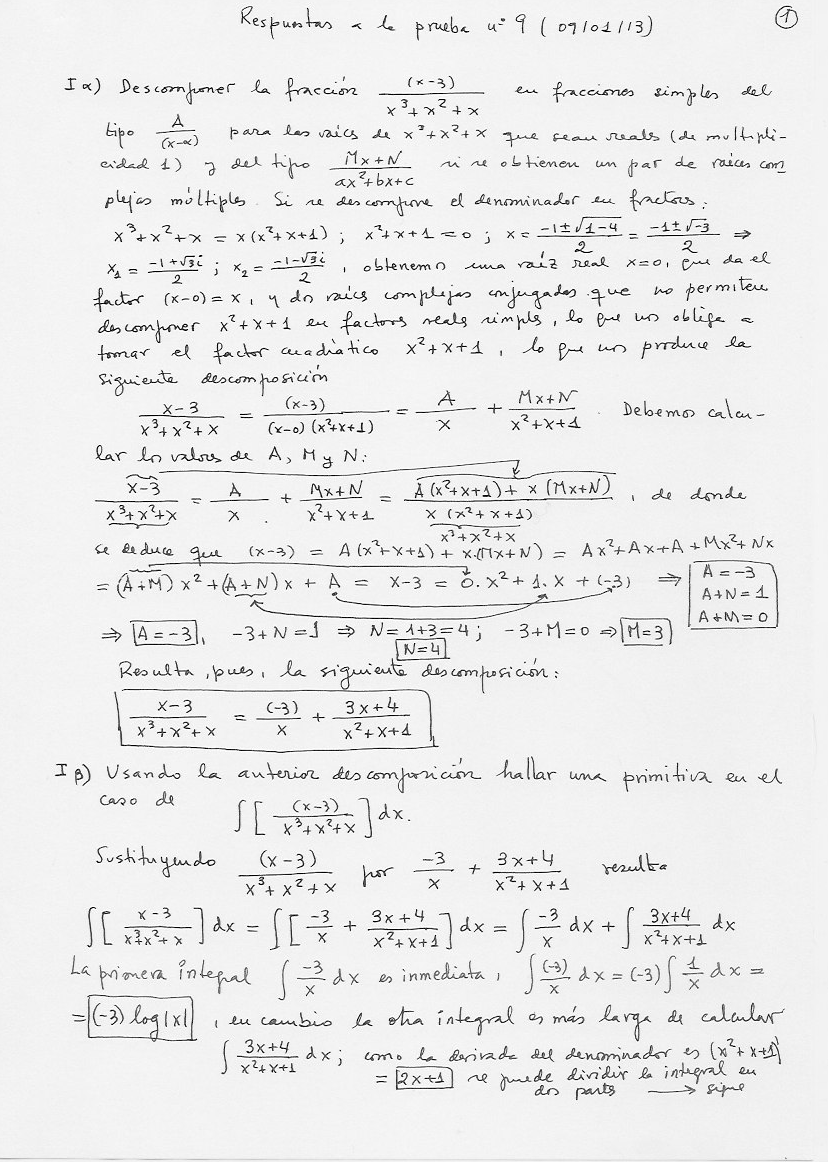 Respuestas a la prueba nº 9 (09/01/13) ①
I α) Descomponer la fracción (x-3)/(x³+x²+x) en fracciones simples del
tipo A/(x-α) para las raíces de x³+x²+x que sean reales (de multipli-
cidad 1) y del tipo (Mx+N)/(ax²+bx+c) si se obtienen un par de raíces com
plejas múltiples. Si se descompone el denominador en factores:
x³+x²+x = x(x²+x+1) ; x²+x+1=0 ; x = (-1±√(1-4))/2 = (-1±√-3)/2 ⇒
x₁ = (-1+√3i)/2 ; x₂ = (-1-√3i)/2 , obtenemos una raíz real x=0, que da el
factor (x-0)=x, y dos raíces complejas conjugadas que no permiten
descomponer x²+x+1 en factores reales simples, lo que nos obliga a
tomar el factor cuadrático x²+x+1, lo que nos produce la
siguiente descomposición
(x-3)/(x³+x²+x) = (x-3)/((x-0)(x²+x+1)) = A/x + (Mx+N)/(x²+x+1). Debemos calcu-
lar los valores de A, M y N:
(x-3)/(x³+x²+x) = A/x + (Mx+N)/(x²+x+1) = (A(x²+x+1) + x(Mx+N))/(x(x²+x+1)) , de donde
x³+x²+x
se deduce que (x-3) = A(x²+x+1) + x.(Mx+N) = Ax²+Ax+A+Mx²+Nx
= (A+M)x² + (A+N)x + A = x-3 = 0.x² + 1.x + (-3) ⇒ A=-3
A+N=1
A+M=0
⇒ A=-3, -3+N=1 ⇒ N=1+3=4 ; -3+M=0 ⇒ M=3
N=4
Resulta, pues, la siguiente descomposición:
(x-3)/(x³+x²+x) = (-3)/x + (3x+4)/(x²+x+1)
I β) Usando la anterior descomposición hallar una primitiva en el
caso de ∫[(x-3)/(x³+x²+x)]dx.
Sustituyendo (x-3)/(x³+x²+x) por -3/x + (3x+4)/(x²+x+1) resulta
∫[(x-3)/(x³+x²+x)]dx = ∫[-3/x + (3x+4)/(x²+x+1)]dx = ∫-3/x dx + ∫(3x+4)/(x²+x+1) dx
La primera integral ∫-3/x dx es inmediata, ∫(-3)/x dx = (-3)∫1/x dx =
= (-3) log|x| , en cambio la otra integral es más larga de calcular
∫(3x+4)/(x²+x+1) dx ; como la derivada del denominador es (x²+x+1)'
= 2x+1 se puede dividir la integral en
dos partes → sigue